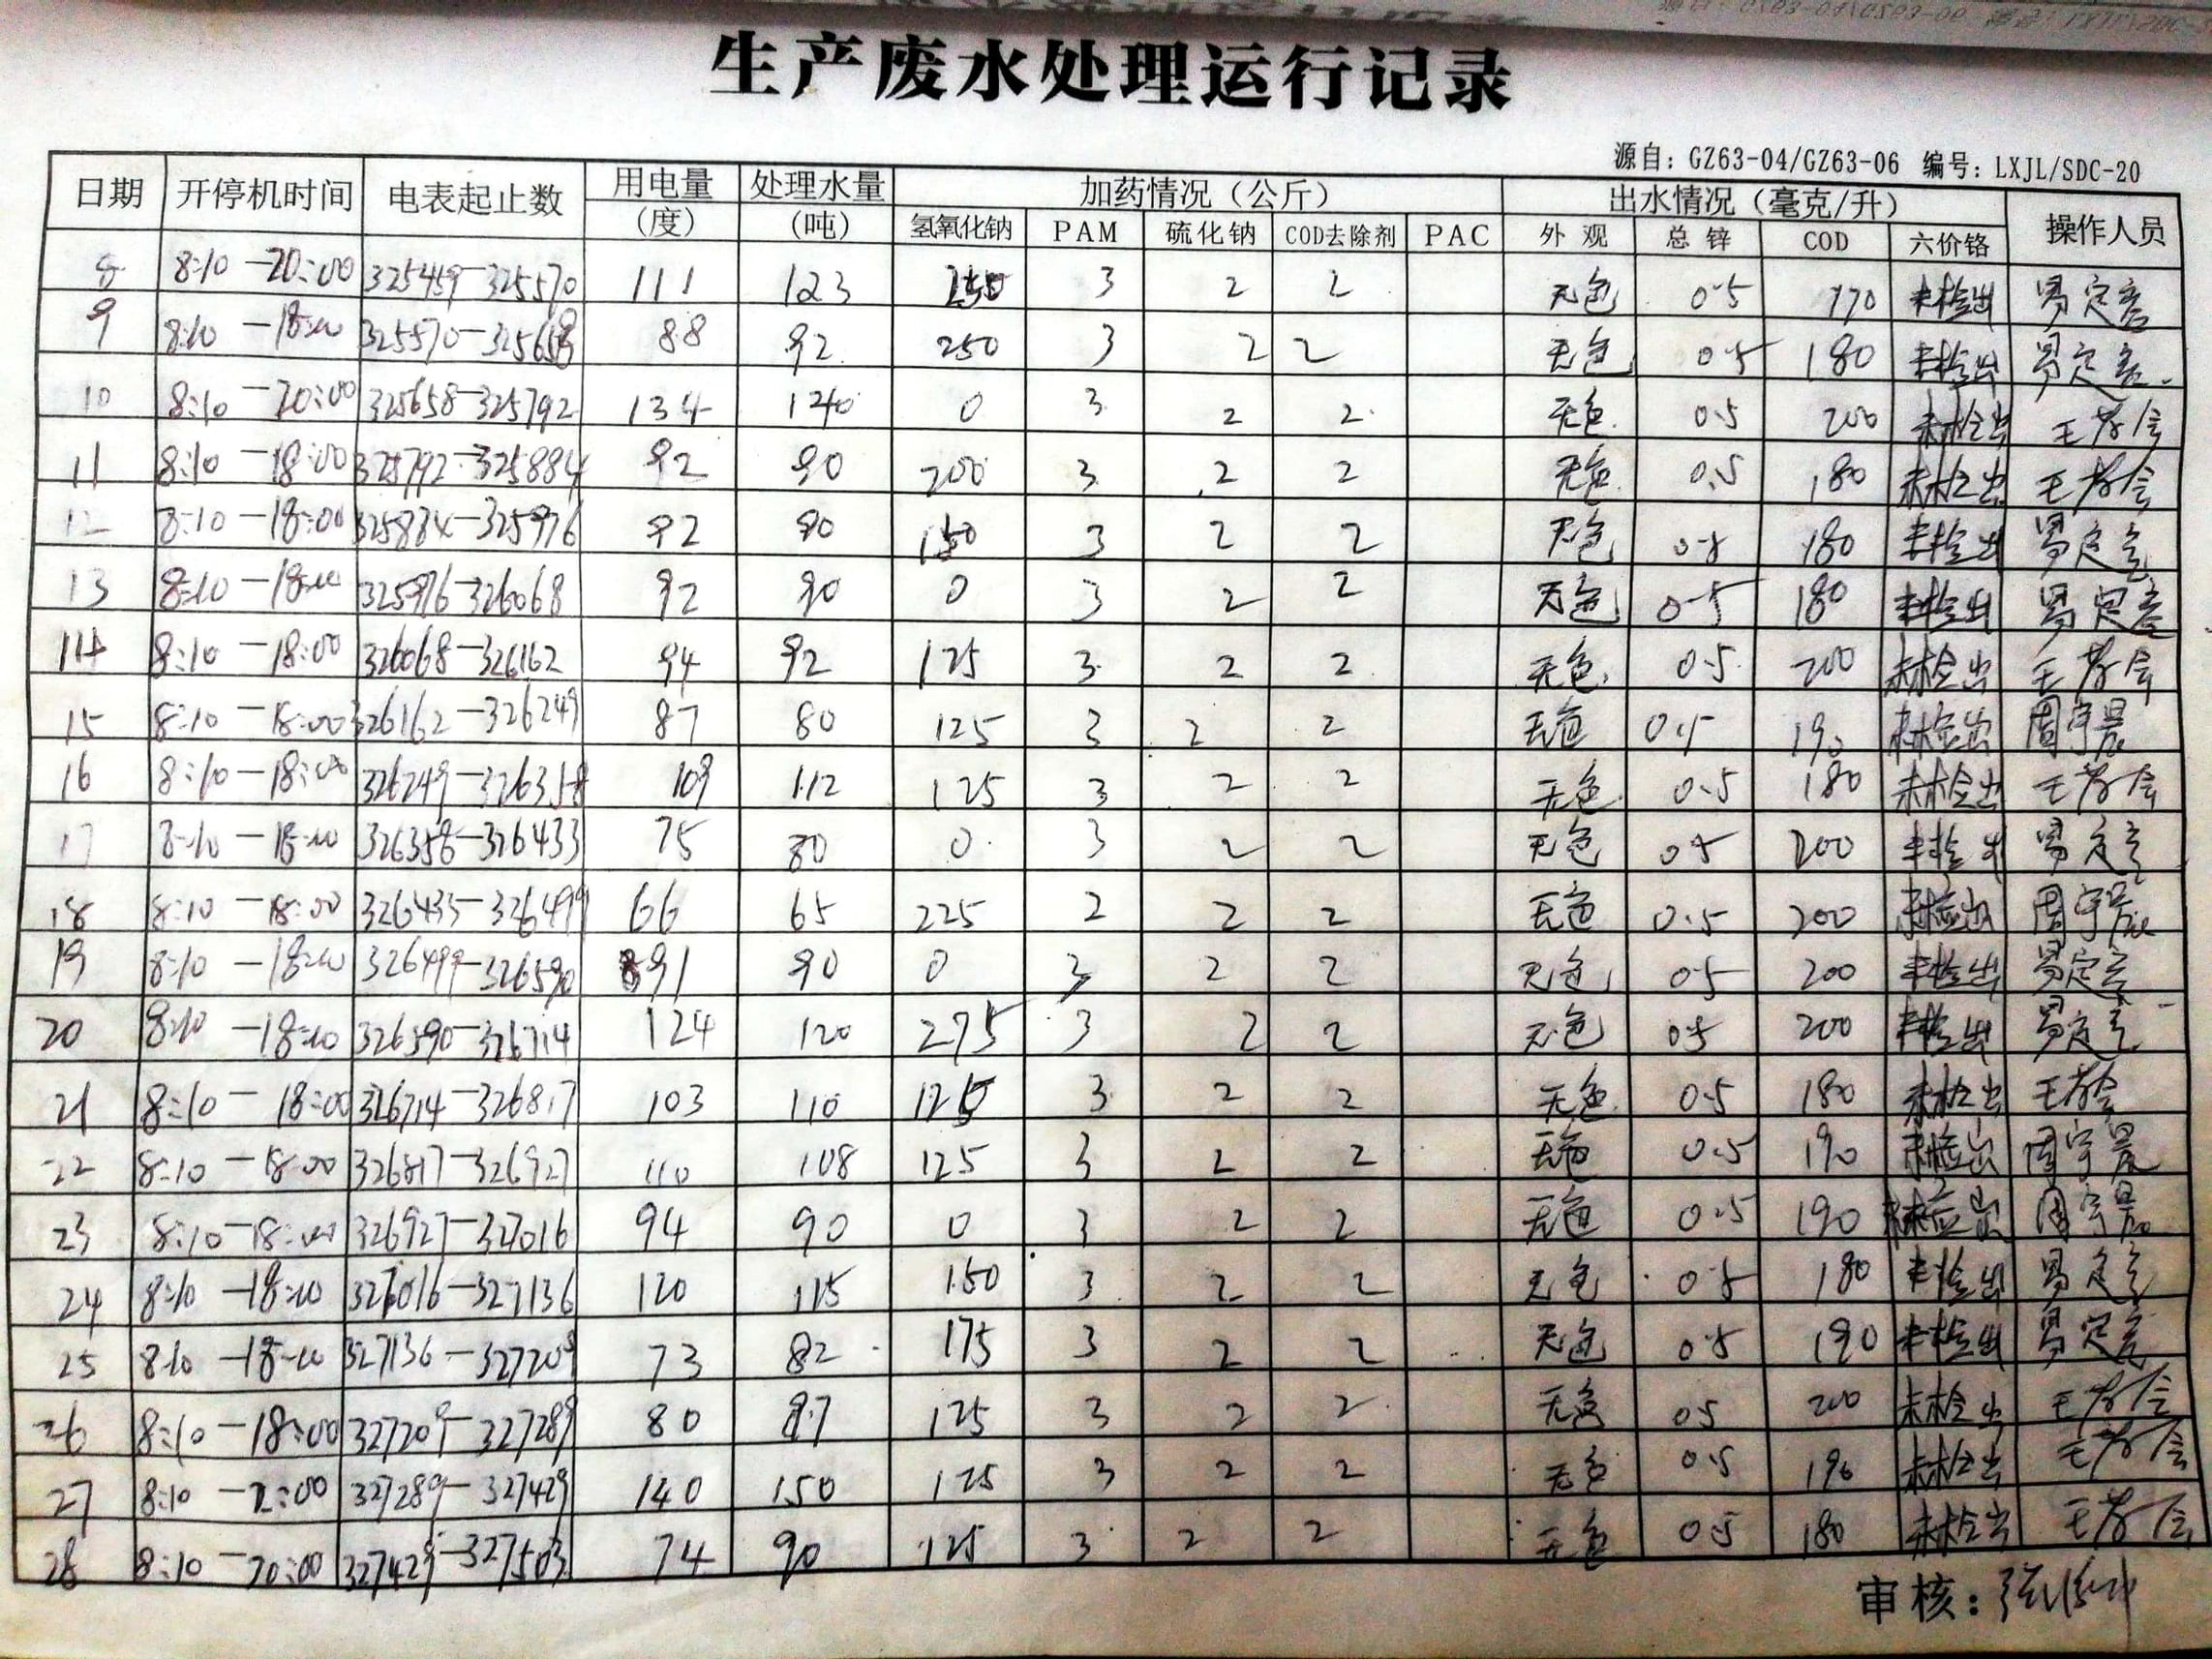 生产废水处理运行记录
源自: GZ63-04/GZ63-06 编号: LXJL/SDC-20
日期 开停机时间 电表起止数 用电量(度) 处理水量(吨) 加药情况(公斤) 出水情况(毫克/升) 操作人员
氢氧化钠 PAM 硫化钠 COD去除剂 PAC 外观 总锌 COD 六价铬
8 8:10-20:00 325459-325570 111 123 250 3 2 2 无色 0.5 170 未检出
9 8:10-18:00 325570-325658 88 92 250 3 2 2 无色 0.5 180 未检出
10 8:10-20:00 325658-325792 134 120 0 3 2 2 无色 0.5 200 未检出
11 8:10-18:00 325792-325884 92 90 200 3 2 2 无色 0.5 180 未检出
12 8:10-18:00 325884-325976 92 90 150 3 2 2 无色 0.5 180 未检出
13 8:10-18:00 325976-326068 92 90 0 3 2 2 无色 0.5 180 未检出
14 8:10-18:00 326068-326162 94 92 125 3 2 2 无色 0.5 200 未检出
15 8:10-18:00 326162-326249 87 80 125 3 2 2 无色 0.5 190 未检出 周宇晨
16 8:10-18:00 326249-326358 109 112 125 3 2 2 无色 0.5 180 未检出
17 8:10-18:00 326358-326433 75 80 0 3 2 2 无色 0.5 200 未检出
18 8:10-18:00 326433-326499 66 65 225 2 2 2 无色 0.5 200 未检出 周宇晨
19 8:10-18:00 326499-326590 91 90 0 3 2 2 无色 0.5 200 未检出
20 8:10-18:00 326590-326714 124 120 275 3 2 2 无色 0.5 200 未检出
21 8:10-18:00 326714-326817 103 110 125 3 2 2 无色 0.5 180 未检出
22 8:10-18:00 326817-326927 110 108 125 3 2 2 无色 0.5 190 未检出 周宇晨
23 8:10-18:00 326927-327016 94 90 0 3 2 2 无色 0.5 190 未检出 周宇晨
24 8:10-18:00 327016-327136 120 115 150 3 2 2 无色 0.5 180 未检出
25 8:10-18:00 327136-327209 73 82 175 3 2 2 无色 0.5 190 未检出
26 8:10-18:00 327209-327289 80 87 125 3 2 2 无色 0.5 200 未检出
27 8:10- 327289-327429 140 150 125 3 2 2 无色 0.5 190 未检出
28 8:10-20:00 327429-327503 74 90 125 3 2 2 无色 0.5 180 未检出
审核: